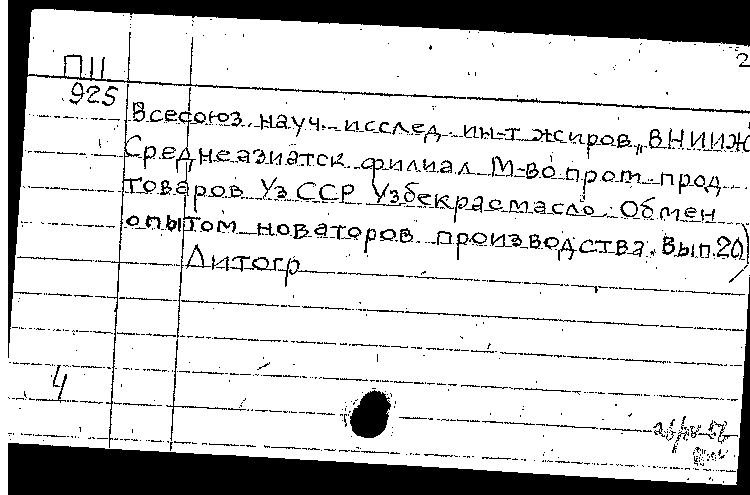 2
П11
925
Всесоюз. науч. исслед. ин-т жиров „ВНИИЖ
Среднеазиатск филиал М-во пром. прод.
товаров УзССР Узбекрасмасло. Обмен
опытом новаторов производства. Вып. 20)
Литогр
4